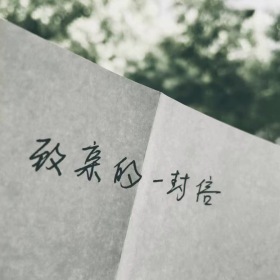 致亲的一封信